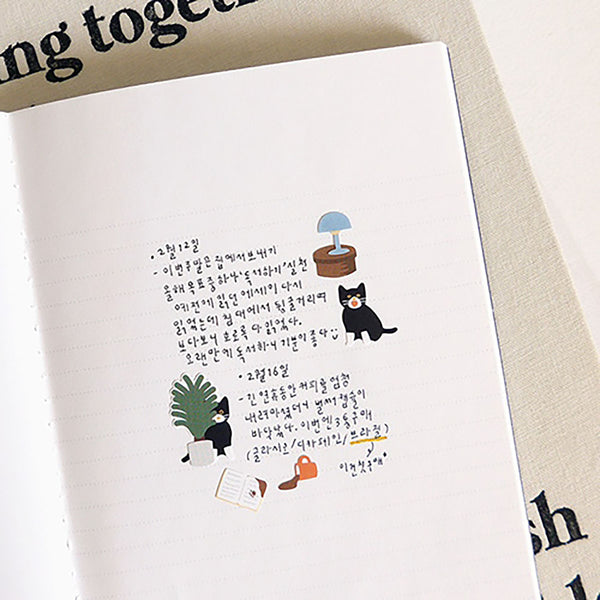 ng togeth
• 2월 12일
- 이번주말은 집에서 보내기
올해 목표 중 하나 '독서하기' 실천
예전에 읽던 에세이 다시
읽었는데 침대에서 뒹굴거리며
보다보니 호로록 다 읽었다.
오랜만에 독서하니 기분이 좋다
• 2월 16일
- 긴 연휴동안 커피를 엄청
내려마셨더니 벌써 원두가
바닥났다. 이번엔 3종 구매
(글라시르/디카페인/브라질)
이건 첫 구매
sh